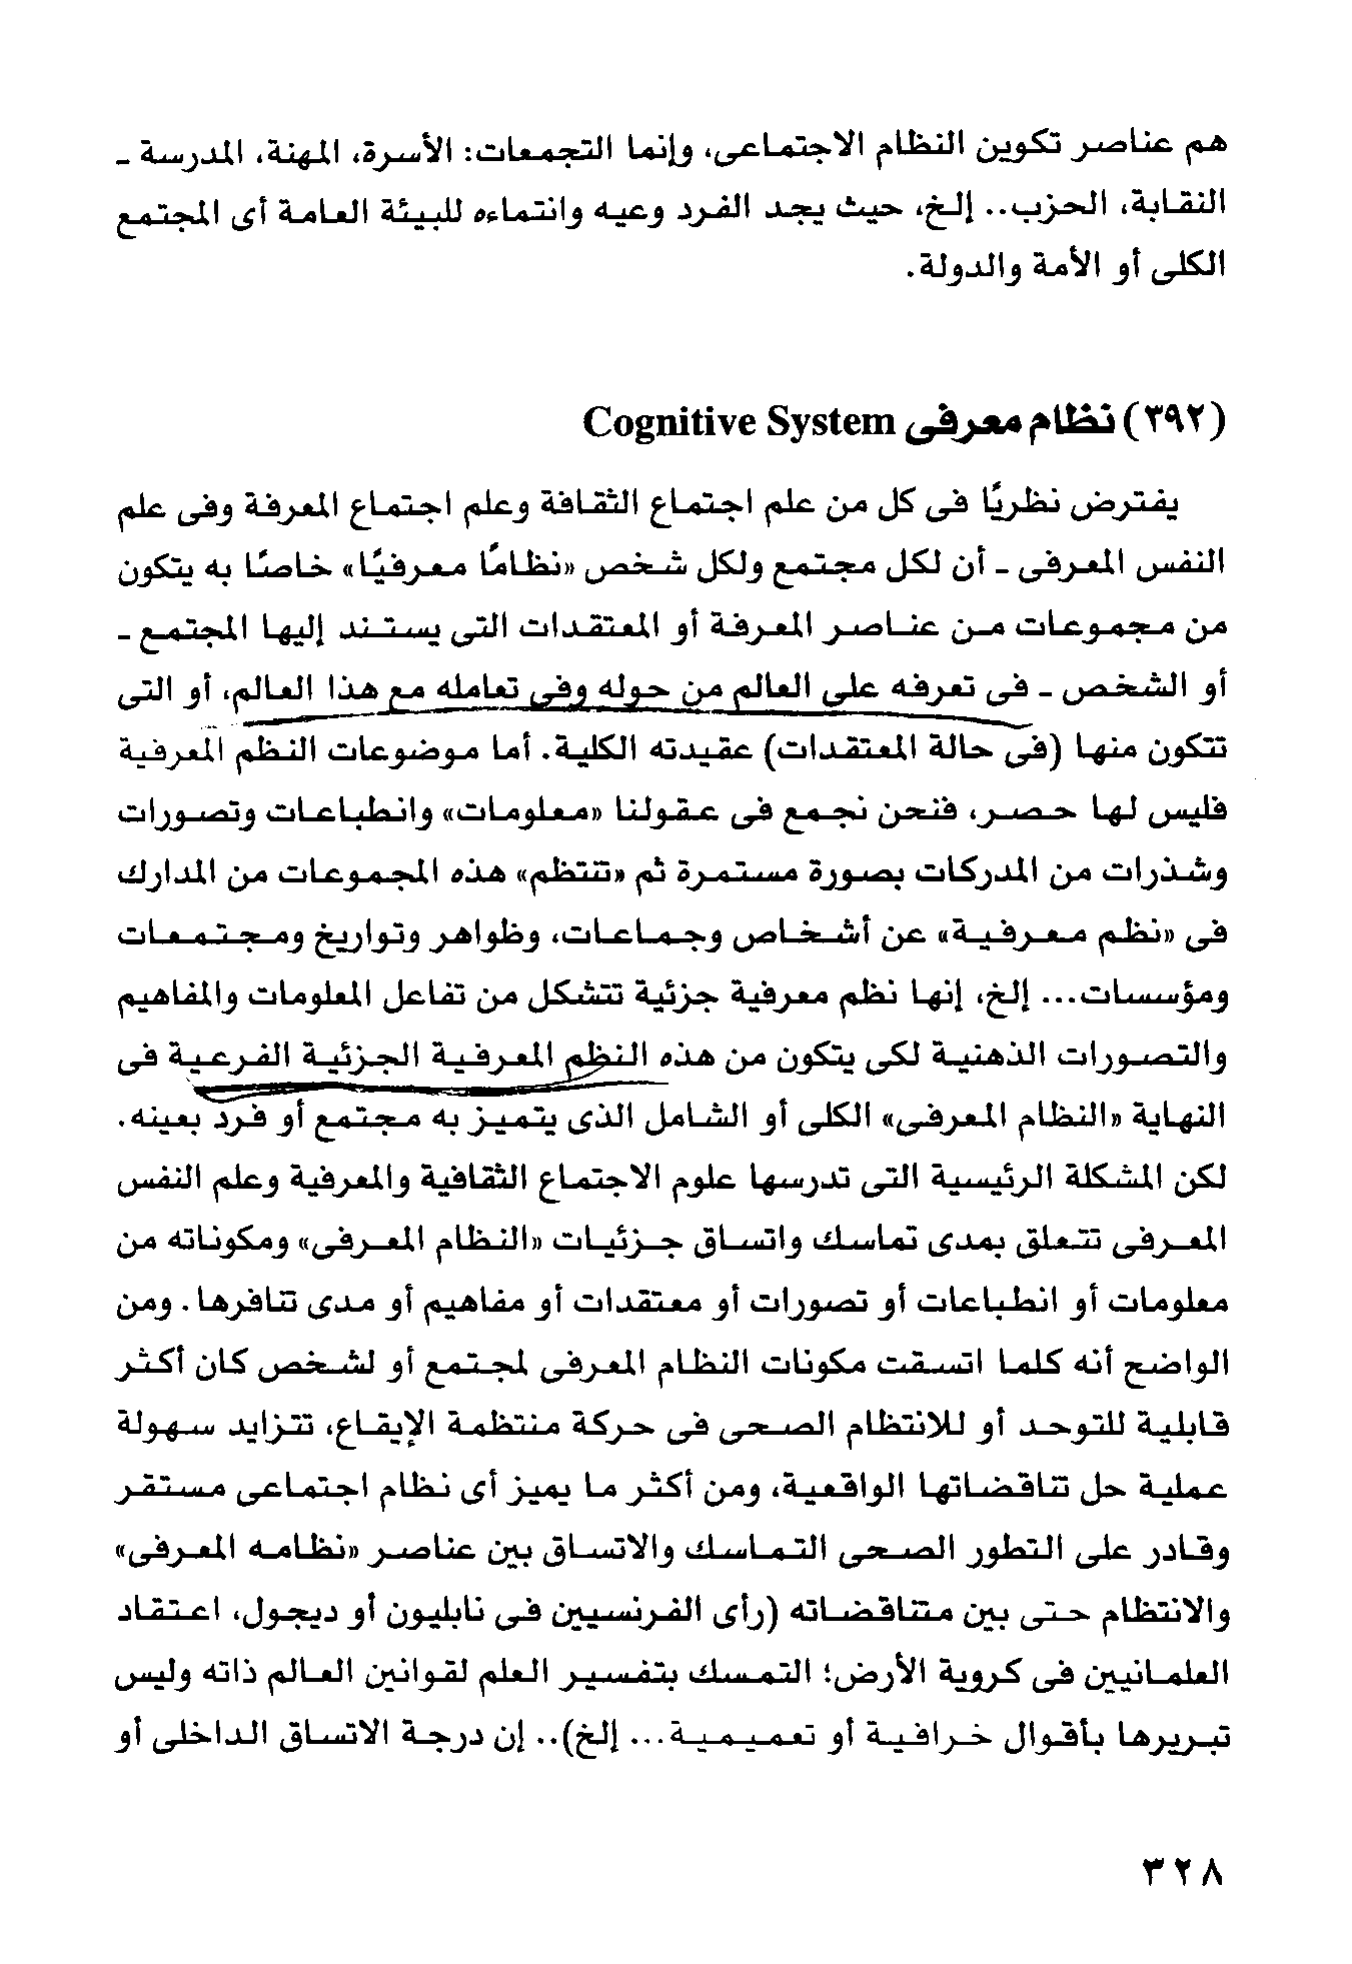 هم عناصر تكوين النظام الاجتماعى، وإنما التجمعات: الأسرة، المهنة، المدرسة ـ
النقابة، الحزب.. إلخ، حيث يجد الفرد وعيه وانتماءه للبيئة العامة أى المجتمع
الكلى أو الأمة والدولة.
(٣٩٢) نظام معرفى Cognitive System
يفترض نظريًا فى كل من علم اجتماع الثقافة وعلم اجتماع المعرفة وفى علم
النفس المعرفى ـ أن لكل مجتمع ولكل شخص «نظامًا معرفيًا» خاصًا به يتكون
من مجموعات من عناصر المعرفة أو المعتقدات التى يستند إليها المجتمع ـ
أو الشخص ـ فى تعرفه على العالم من حوله وفى تعامله مع هذا العالم، أو التى
تتكون منها (فى حالة المعتقدات) عقيدته الكلية. أما موضوعات النظم المعرفية
فليس لها حصر، فنحن نجمع فى عقولنا «معلومات» وانطباعات وتصورات
وشذرات من المدركات بصورة مستمرة ثم «تنتظم» هذه المجموعات من المدارك
فى «نظم معرفية» عن أشخاص وجماعات، وظواهر وتواريخ ومجتمعات
ومؤسسات... إلخ، إنها نظم معرفية جزئية تتشكل من تفاعل المعلومات والمفاهيم
والتصورات الذهنية لكى يتكون من هذه النظم المعرفية الجزئية الفرعية فى
النهاية «النظام المعرفى» الكلى أو الشامل الذى يتميز به مجتمع أو فرد بعينه.
لكن المشكلة الرئيسية التى تدرسها علوم الاجتماع الثقافية والمعرفية وعلم النفس
المعرفى تتعلق بمدى تماسك واتساق جزئيات «النظام المعرفى» ومكوناته من
معلومات أو انطباعات أو تصورات أو معتقدات أو مفاهيم أو مدى تنافرها. ومن
الواضح أنه كلما اتسقت مكونات النظام المعرفى لمجتمع أو لشخص كان أكثر
قابلية للتوحد أو للانتظام الصحى فى حركة منتظمة الإيقاع، تتزايد سهولة
عملية حل تناقضاتها الواقعية، ومن أكثر ما يميز أى نظام اجتماعى مستقر
وقادر على التطور الصحى التماسك والاتساق بين عناصر «نظامه المعرفى»
والانتظام حتى بين متناقضاته (رأى الفرنسيين فى نابليون أو ديجول، اعتقاد
العلمانيين فى كروية الأرض؛ التمسك بتفسير العلم لقوانين العالم ذاته وليس
تبريرها بأقوال خرافية أو تعميمية... إلخ).. إن درجة الاتساق الداخلى أو
٣٢٨